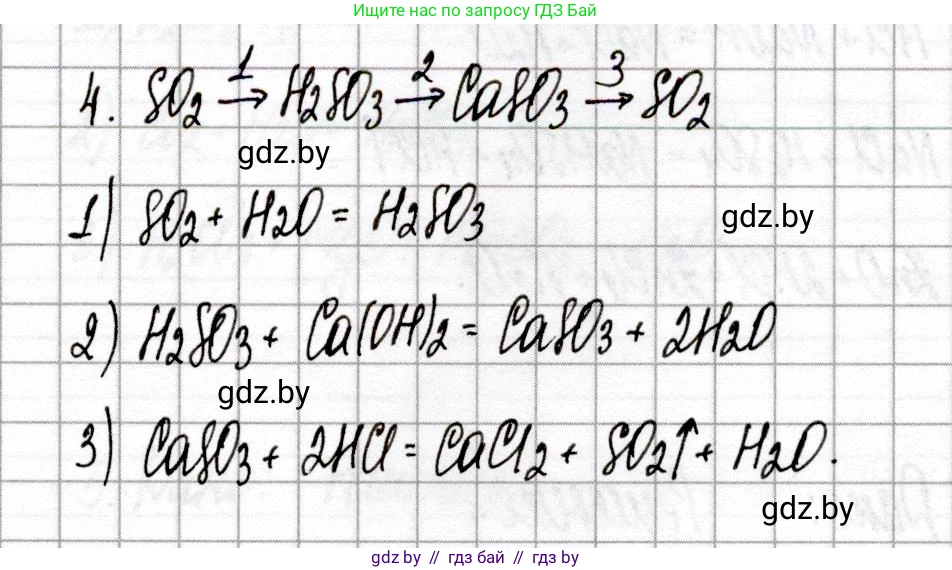 Ищите нас по запросу ГДЗ Бай
4. SO2 →1 H2SO3 →2 CaSO3 →3 SO2
gdz.by
1) SO2 + H2O = H2SO3
gdz.by
2) H2SO3 + Ca(OH)2 = CaSO3 + 2H2O
gdz.by
3) CaSO3 + 2HCl = CaCl2 + SO2↑ + H2O.
gdz.by
gdz.by // гдз бай // гдз by